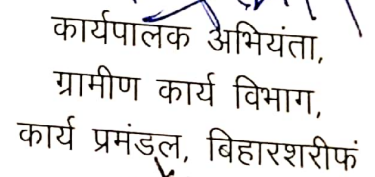 कार्यपालक अभियंता,
ग्रामीण कार्य विभाग,
कार्य प्रमंडल, बिहारशरीफं